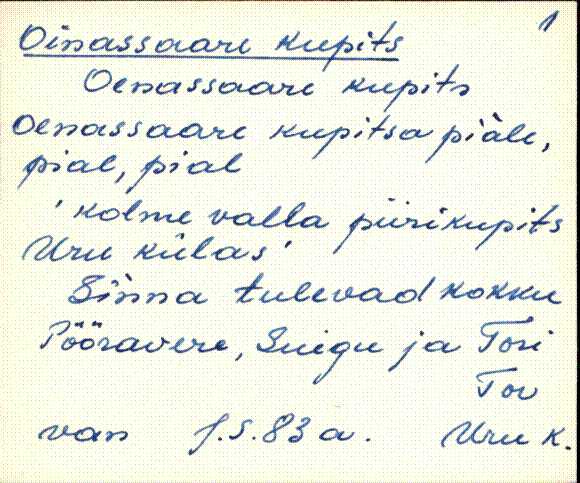 1
Oinassaare kupits
Oenassaare kupits
Oenassaare kupitsa piäle,
pial, pial
'kolme valla piirikupits
Uru külas'
Sinna tulevad kokku
Pööravere, Suigu ja Tori
Tor
van J.S. 83 a. Uru k.